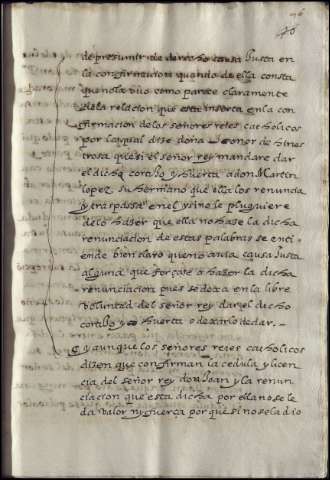 76
40
de presumir de derecho causa Justa en
la confirmacion quando de ella consta
que no la uvo como parece claramente
de la relacion que esta inserta en la con
firmacion de los señores reies catholicos
por la qual dize doña Leonor de hines
trosa que si el señor rey mandare dar
el dicho cortijo y huerta a don Martin
lopez su hermano que ella los renuncia
y traspassa en el y si no le pluguiere
de lo hazer que ella no haze la dicha
renunciacion de estas palabras se enti
ende bien claro que no avia causa Justa
alguna que forçase a hazer la dicha
renunciacion pues se dexa en la libre
voluntad del señor rey dar el dicho
cortijo y huerta o dexarlo de dar. —
y aunque los señores reies catholicos
dizen que confirman la cedula y licen
cia del señor rey don Joan y la renun
ciacion que esta dicha por ello no se le
da valor ni fuerça por que si no se la dio